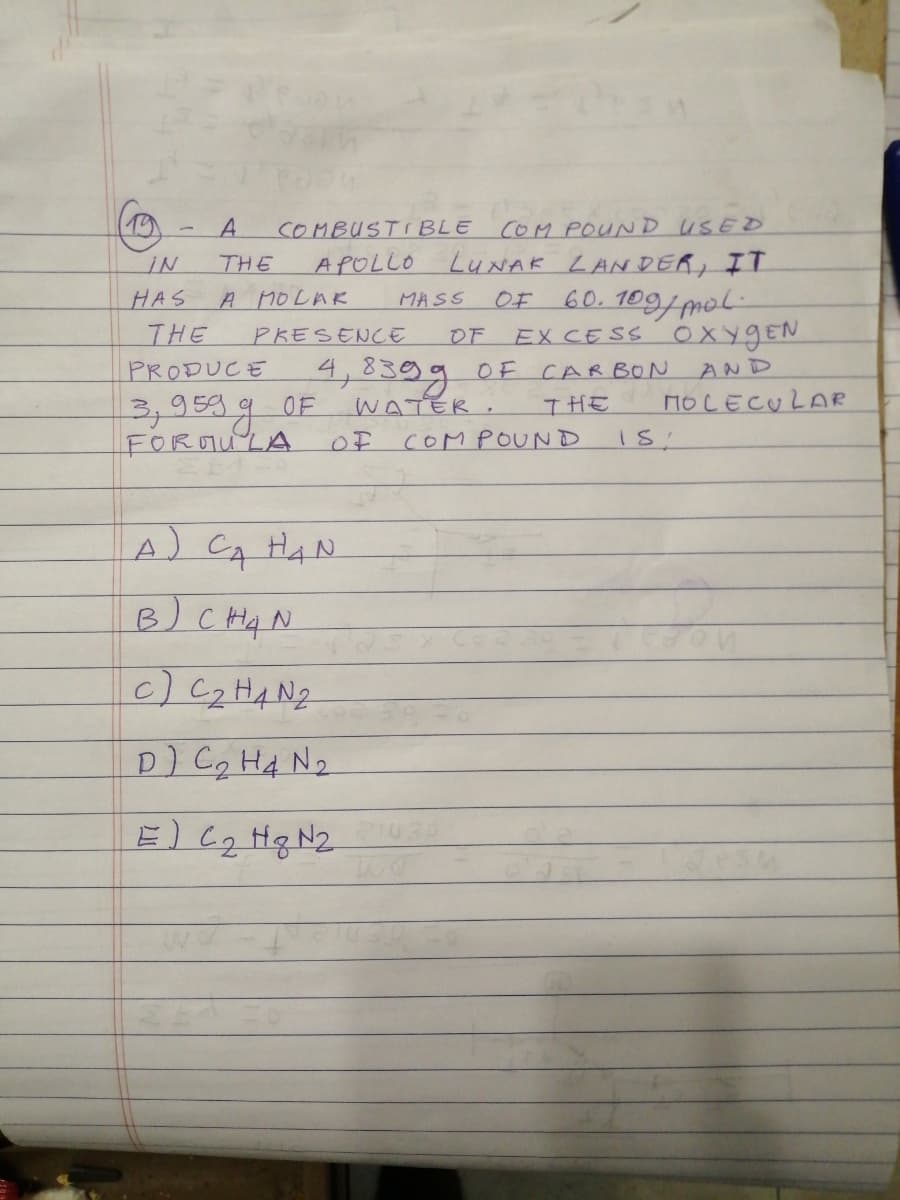 19 - A COMBUSTIBLE COMPOUND USED
IN THE APOLLO LUNAR LANDER, IT
HAS A MOLAR MASS OF 60.10g/mol.
THE PRESENCE OF EXCESS OXYgEN
PRODUCE 4,839g OF CARBON AND
3,959 g OF WATER. THE MOLECULAR
FORMULA OF COMPOUND IS:
A) C4 H4 N
B) C H4 N
C) C2 H4 N2
D) C2 H4 N2
E) C2 H8 N2